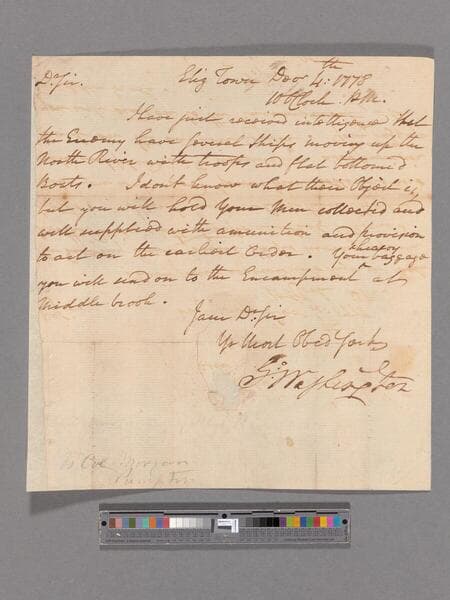 Dr Sir.
Eliz Town Decr 4th: 1778
10 oClock AM.
I have just received intelligence that
the Enemy have several Ships moving up the
North River with troops and flat bottomed
Boats. I don't know what their Object is,
but you will hold Your Men collected and
well supplied with amunition and provision
to act on the earliest Order. Your heavy baggage
you will send on to the Encampment at
Middle brook.
I am Dr Sir
Yr Most Obed Servt
Go: Washington
to Col. Morgan
Pumpton